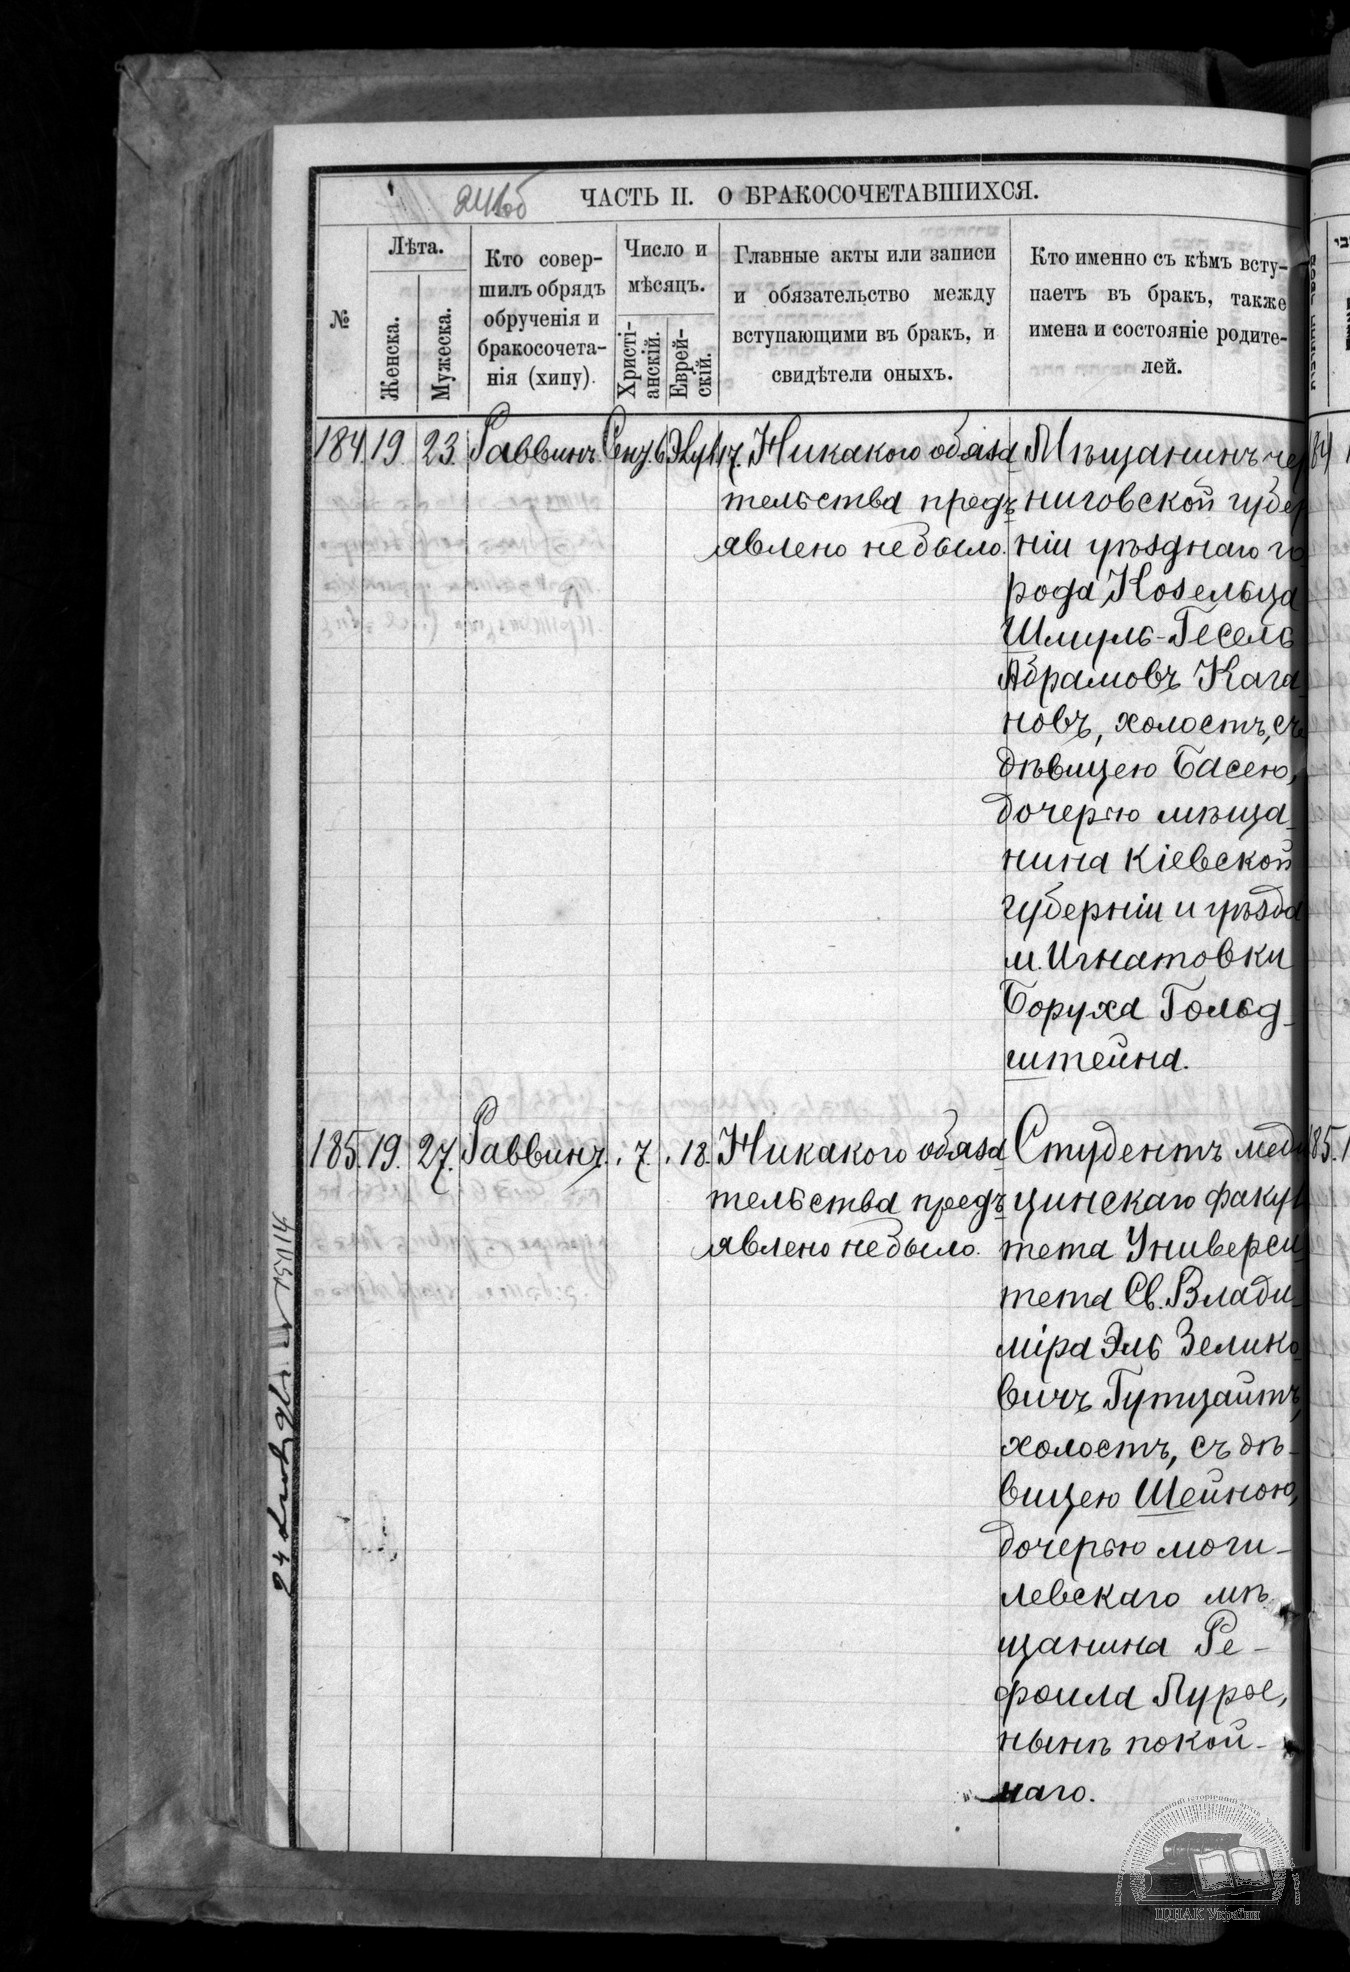 241об
ЧАСТЬ II. О БРАКОСОЧЕТАВШИХСЯ.
№
Лѣта.
Женска.
Мужеска.
Кто совер-
шилъ обрядъ
обрученія и
бракосочета-
нія (хипу).
Число и
мѣсяцъ.
Христі-
анскій.
Еврей-
скій.
Главные акты или записи
и обязательство между
вступающими въ бракъ, и
свидѣтели оныхъ.
Кто именно съ кѣмъ всту-
паетъ въ бракъ, также
имена и состояніе родите-
лей.
184. 19. 23. Раввинъ. Сент. 6. Элул. 17. Никакого обяза-
тельства предъ-
явлено не было.
Мѣщанинъ чер
ниговской губер
ніи уѣзднаго го
рода Козельца
Шмуль-Гесель
Абрамовъ Кага
новъ, холостъ, съ
дѣвицею Басею,
дочерью мѣща-
нина Кіевской
губерніи и уѣзда
м. Игнатовки
Боруха Гольд-
штейна.
185. 19. 27. Раввинъ. . 7. . 18. Никакого обяза-
тельства предъ-
явлено не было.
Студентъ меди
цинскаго факул
тета Универси
тета Св. Влади-
міра Эль Зелико-
вичъ Гутцайтъ,
холостъ, съ дѣ-
вицею Шейною,
дочерью моги-
левскаго мѣ-
щанина Ре-
фоила Лурье,
нынѣ покой-
наго.
ЦНАК України